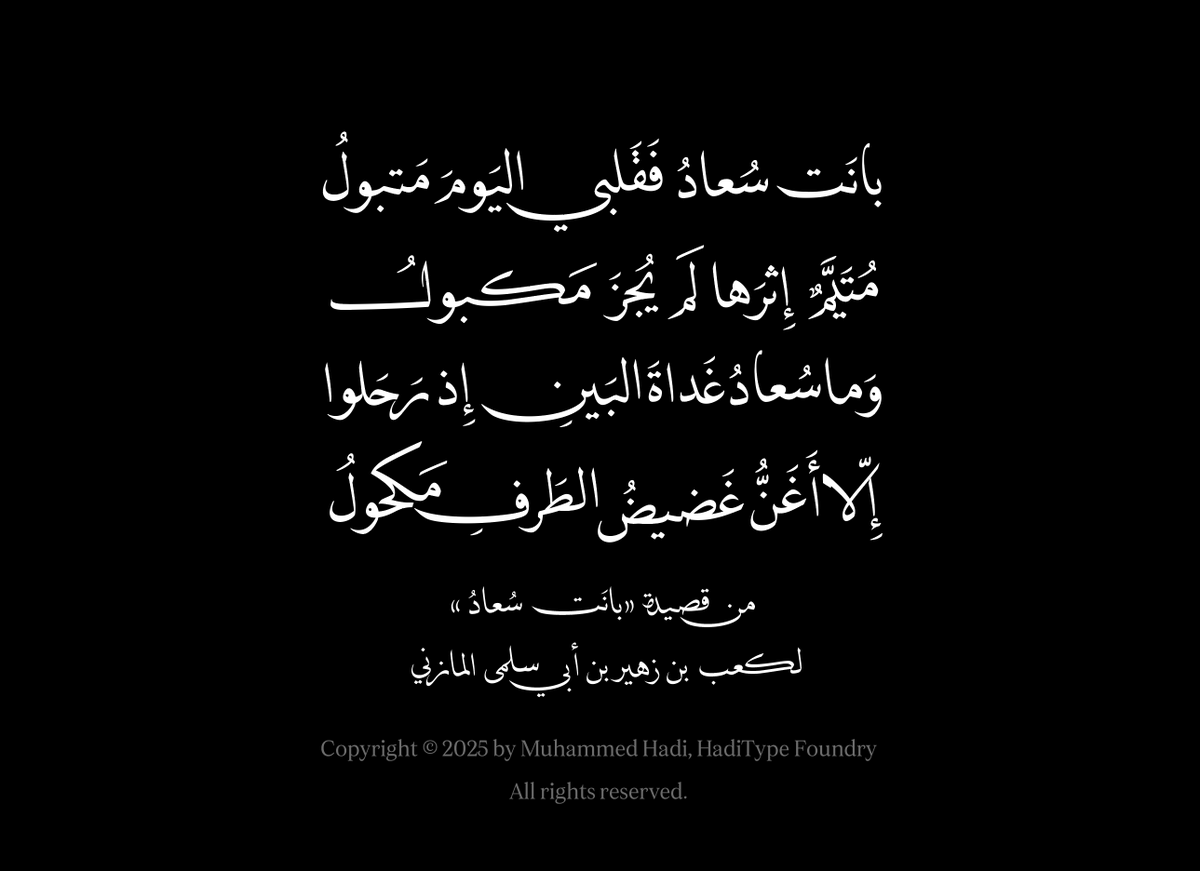 بانَت سُعادُ فَقَلبي اليَومَ مَتبولُ
مُتَيَّمٌ إِثرَها لَم يُجزَ مَكبولُ
وَما سُعادُ غَداةَ البَينِ إِذ رَحَلوا
إِلّا أَغَنُّ غَضيضُ الطَرفِ مَكحولُ
من قصيدة «بانَت سُعادُ»
لكعب بن زهير بن أبي سلمى المازني
Copyright © 2025 by Muhammed Hadi, HadiType Foundry
All rights reserved.